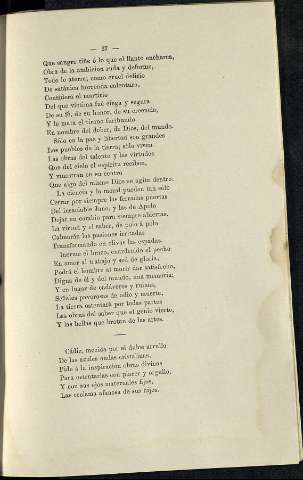 — 27 —
Que sangre tiñe ó lo que el llanto encharca,
Obra de la ambicion ruda y deforme,
Todo lo aterra; como cruel delirio
De satánica horrenda calentura,
Considera el martirio
Del que víctima fué ciega y segura
De su fé, de su honor, de su creencia,
Y lo mata el tirano furibundo
En nombre del deber, de Dios, del mundo.
Sólo en la paz y libertad son grandes
Los pueblos de la tierra; sólo viven
Las obras del talento y las virtudes
Que del cielo el espíritu reciben,
Y muestran en su centro
Que algo del mismo Dios se agita dentro.
La ciencia y la moral pueden tan sólo
Cerrar por siempre las ferradas puertas
Del insaciable Jano, y las de Apolo
Dejar en cambio para siempre abiertas.
La virtud y el saber, de polo á polo
Calmarán las pasiones irritadas
Transformando en olivas las espadas.
Incruento el brazo, enardecido el pecho
En amor al trabajo y sed de gloria,
Podrá el hombre al morir dar satisfecho,
Digna de él y del mundo, una memoria;
Y en lugar de cadáveres y ruinas,
Señales pavorosas de odio y muerte,
La tierra ostentará por todas partes
Las obras del saber que el genio vierte,
Y las bellas que brotan de las artes.
Cádiz, mecida por el dulce arrullo
De las azules ondas cristalinas,
Pide á la inspiracion obras divinas
Para ostentarlas con placer y orgullo,
Y con sus ojos maternales fijos,
Las reclama afanosa de sus hijos.